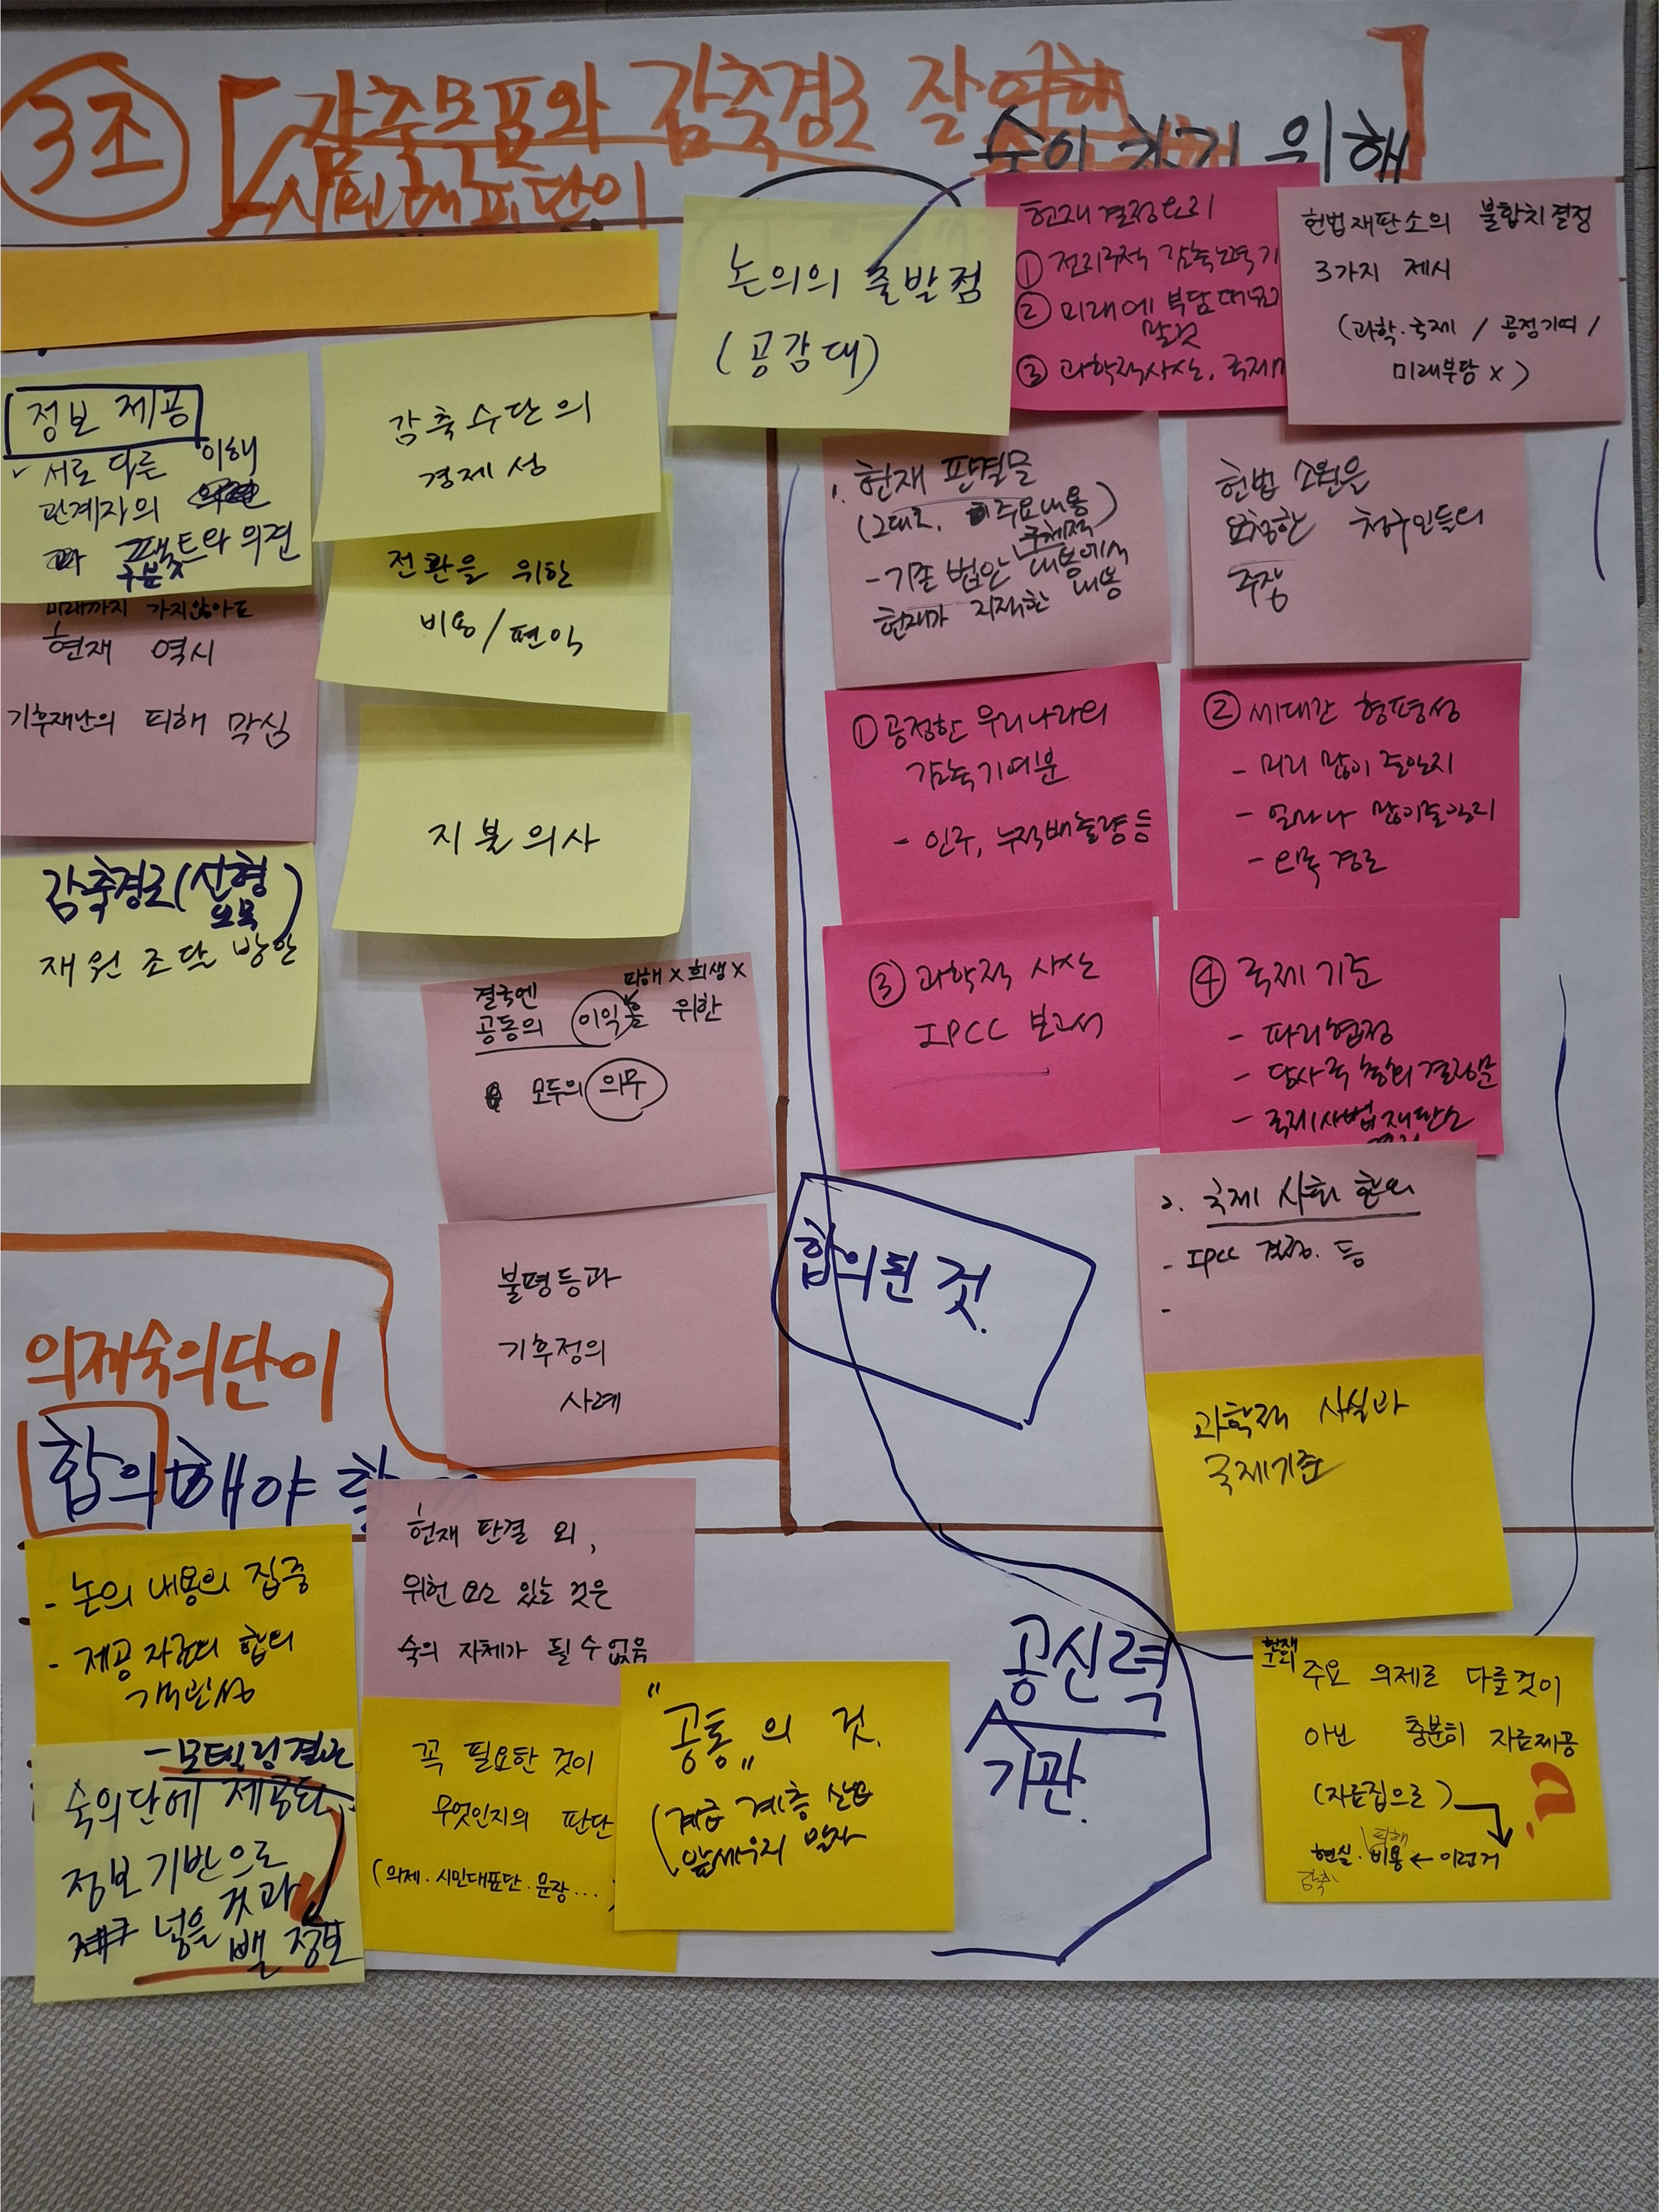 3조
감축목표와 감축경로 잘
시민대표단이
위해
논의의 출발점
(공감대)
헌재 결정요지
① 전지구적 감축노력 기
② 미래에 부담 떠넘기
말것
③ 과학적사실, 국제
헌법재판소의 불합치결정
3가지 제시
(과학·국제 / 공정기여 /
미래부담 x )
정보 제공
서로 다른 이해
관계자의
팩트와 의견
구분
감축수단의
경제성
전환을 위한
비용/편익
미래까지 가지않아도
현재 역시
기후재난의 피해 막심
지불의사
감축경로(선형
오목)
재원 조달 방안
1. 헌재 판결문
(그대로, 주요내용)
구체적
- 기존 법안 내용에서
헌재가 지적한 내용
헌법 소원을
요청한 청구인들의
주장
① 공정한 우리나라의
감축기여분
- 인구, 누적배출량 등
② 세대간 형평성
- 미리 많이 줄일지
- 얼마나 많이줄일지
- 오목 경로
③ 과학적 사실
IPCC 보고서
④ 국제 기준
- 파리협정
- 당사국 총회 결정문
- 국제사법재판소
피해 x 희생 x
결국엔
공동의 이익을 위한
모두의 의무
불평등과
기후정의
사례
합의된 것.
2. 국제 사회 합의
- IPCC 결정. 등
-
과학적 사실과
국제기준
의제숙의단이
합의해야 할
- 논의 내용의 집중
- 제공 자료의 합의
객관성
헌재 판결 외,
위헌 요소 있는 것은
숙의 자체가 될 수 없음
- 모델링결과
숙의단에 제공된
정보기반으로
넣을 것과
뺄 정보
꼭 필요한 것이
무엇인지의 판단
(의제·시민대표단·문장....
"공통"의 것.
(계급 계층 산업
앞세우지 말자
공신력
기관.
헌재
주요 의제로 다룰것이
아닌 충분히 자료제공
(자료집으로)
피해
현실·비용 ← 이런거
감축